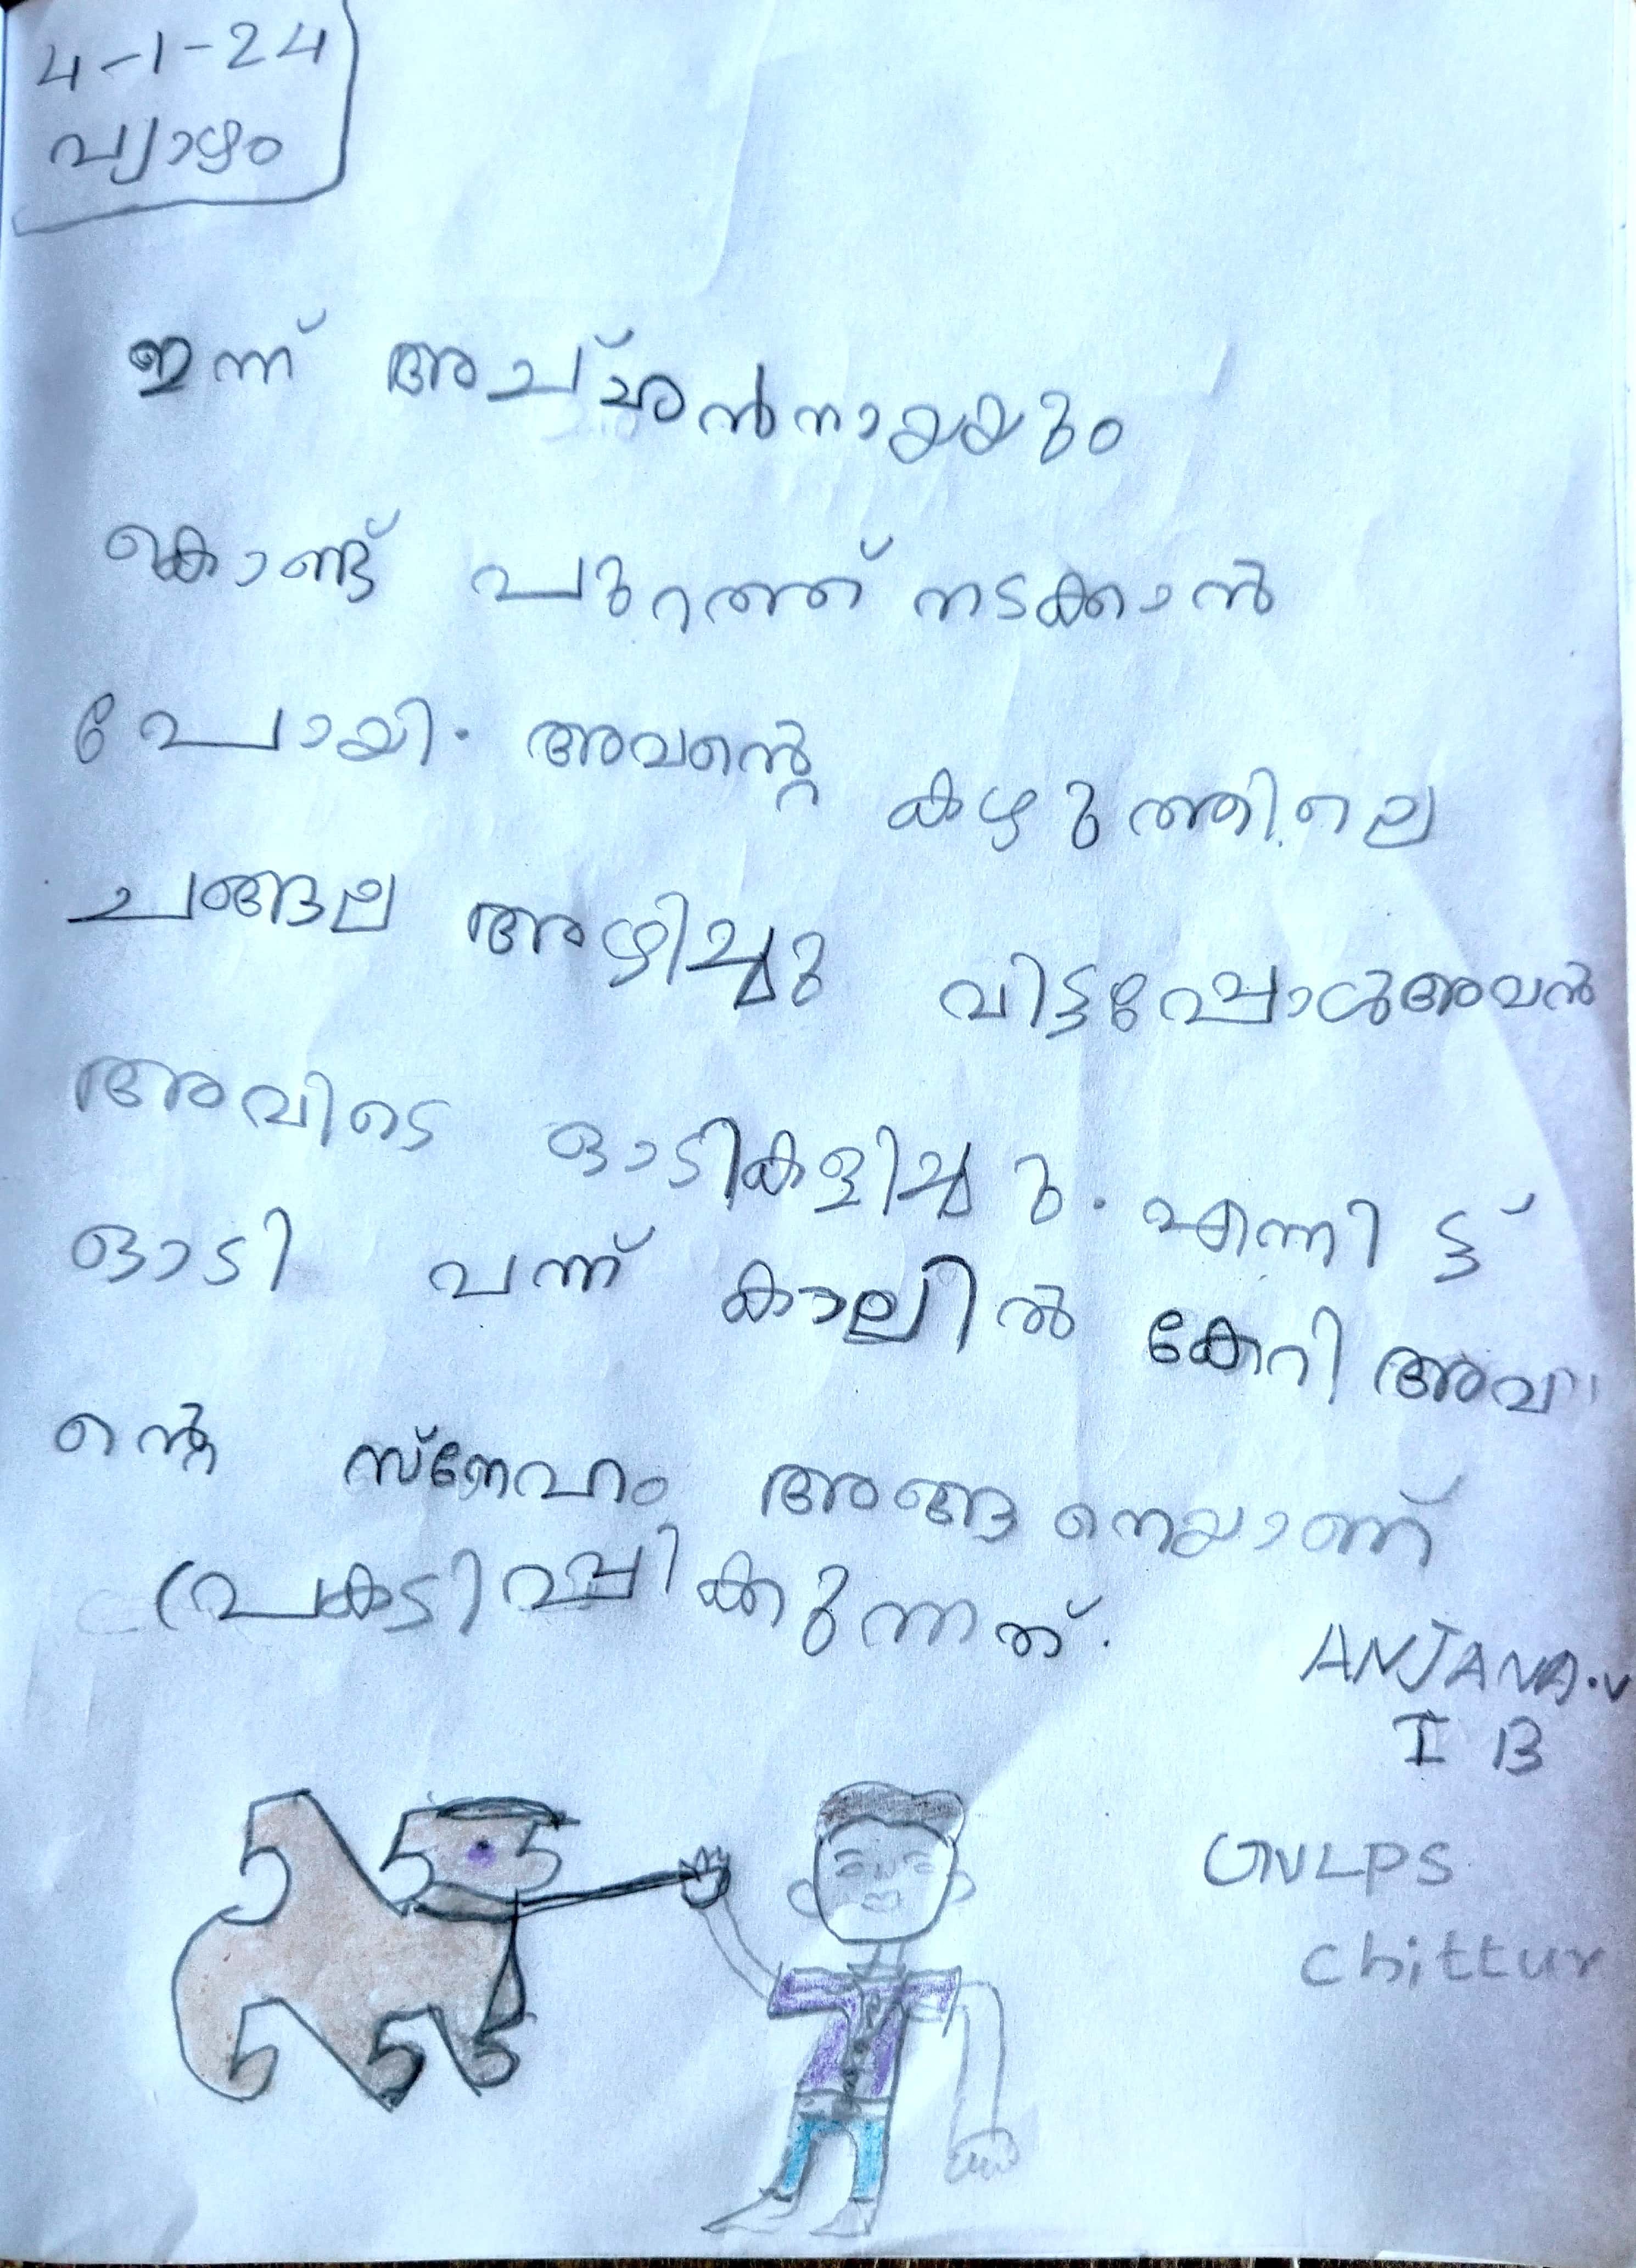 4-1-24
വ്യാഴം
ഇന്ന് അച്ഛൻനായയും
കൊണ്ട് പുറത്ത് നടക്കാൻ
പോയി. അവന്റെ കഴുത്തിലെ
ചങ്ങല അഴിച്ചു വിട്ടപ്പോൾഅവൻ
അവിടെ ഓടികളിച്ചു. എന്നിട്ട്
ഓടി വന്ന് കാലിൽ കേറി അവ
ന്റെ സ്നേഹം അങ്ങനെയാണ്
പ്രകടിപ്പിക്കുന്നത്.
ANJANA.V
I B
GVLPS
Chittur